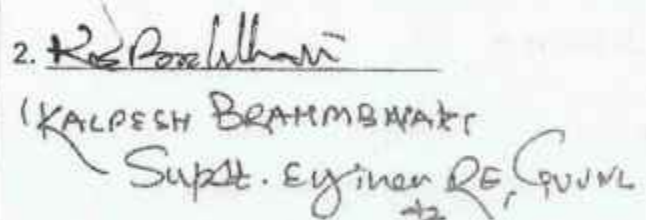 2.
(KALPESH BRAHMBHATT
Supdt. Eginer RE, GUVNL